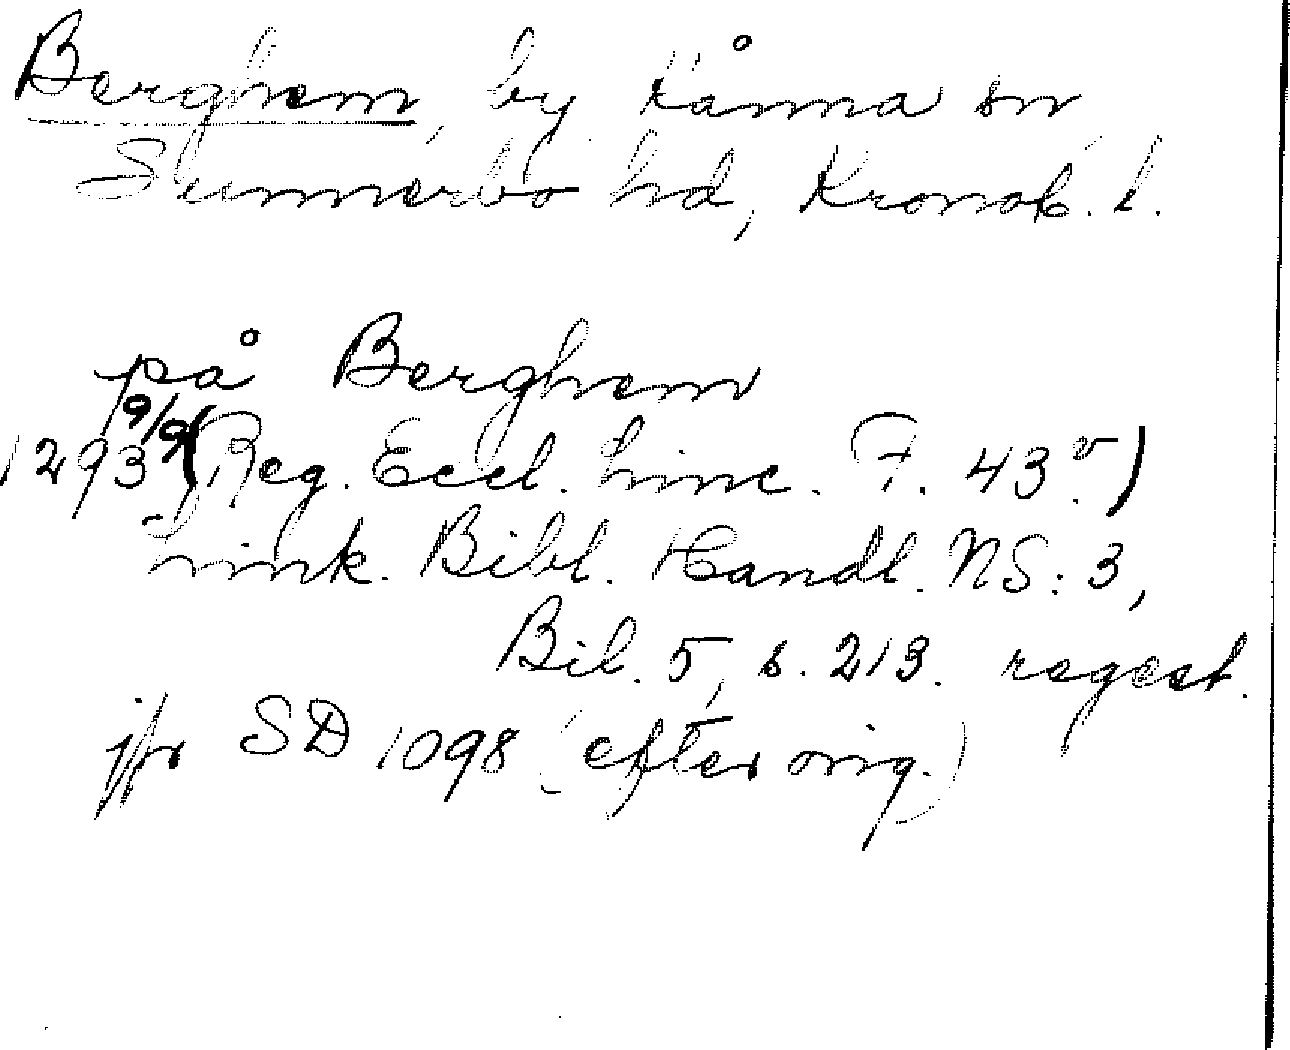 Berghem, by Kånna sn,
Sunnerbo hd, Kronob. l.
på Berghem
1293 9/9 (Reg. Eccl. Linc. F. 43 v.)
Link. Bibl. Handl. NS: 3,
Bil. 5, s. 213. regest.
jfr SD 1098 (efter orig.)